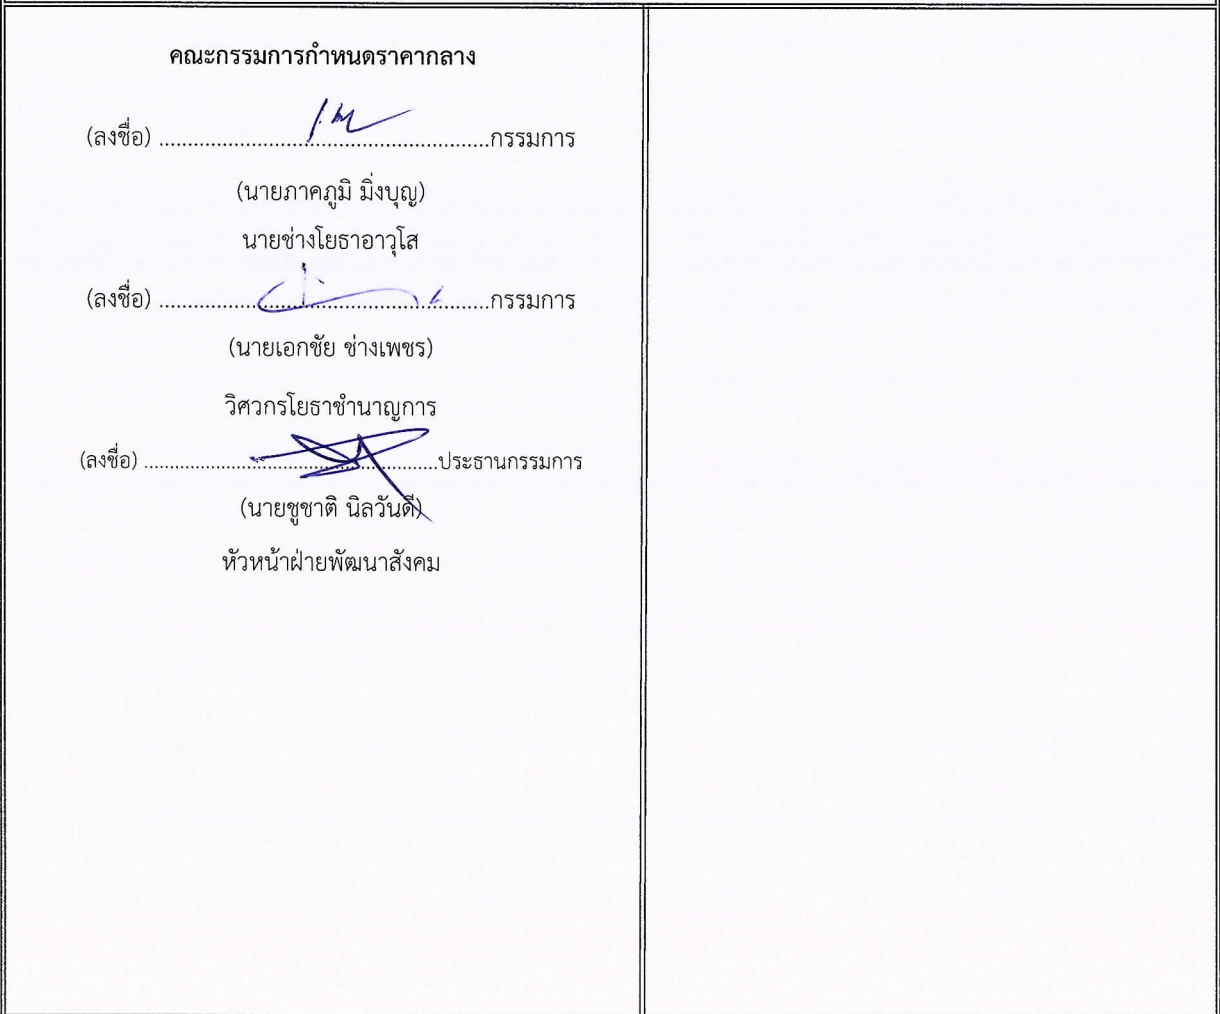 คณะกรรมการกำหนดราคากลาง
(ลงชื่อ) ..........................................................กรรมการ
(นายภาคภูมิ มิ่งบุญ)
นายช่างโยธาอาวุโส
(ลงชื่อ) ..........................................................กรรมการ
(นายเอกชัย ช่างเพชร)
วิศวกรโยธาชำนาญการ
(ลงชื่อ) ..........................................................ประธานกรรมการ
(นายชูชาติ นิลวันดี)
หัวหน้าฝ่ายพัฒนาสังคม